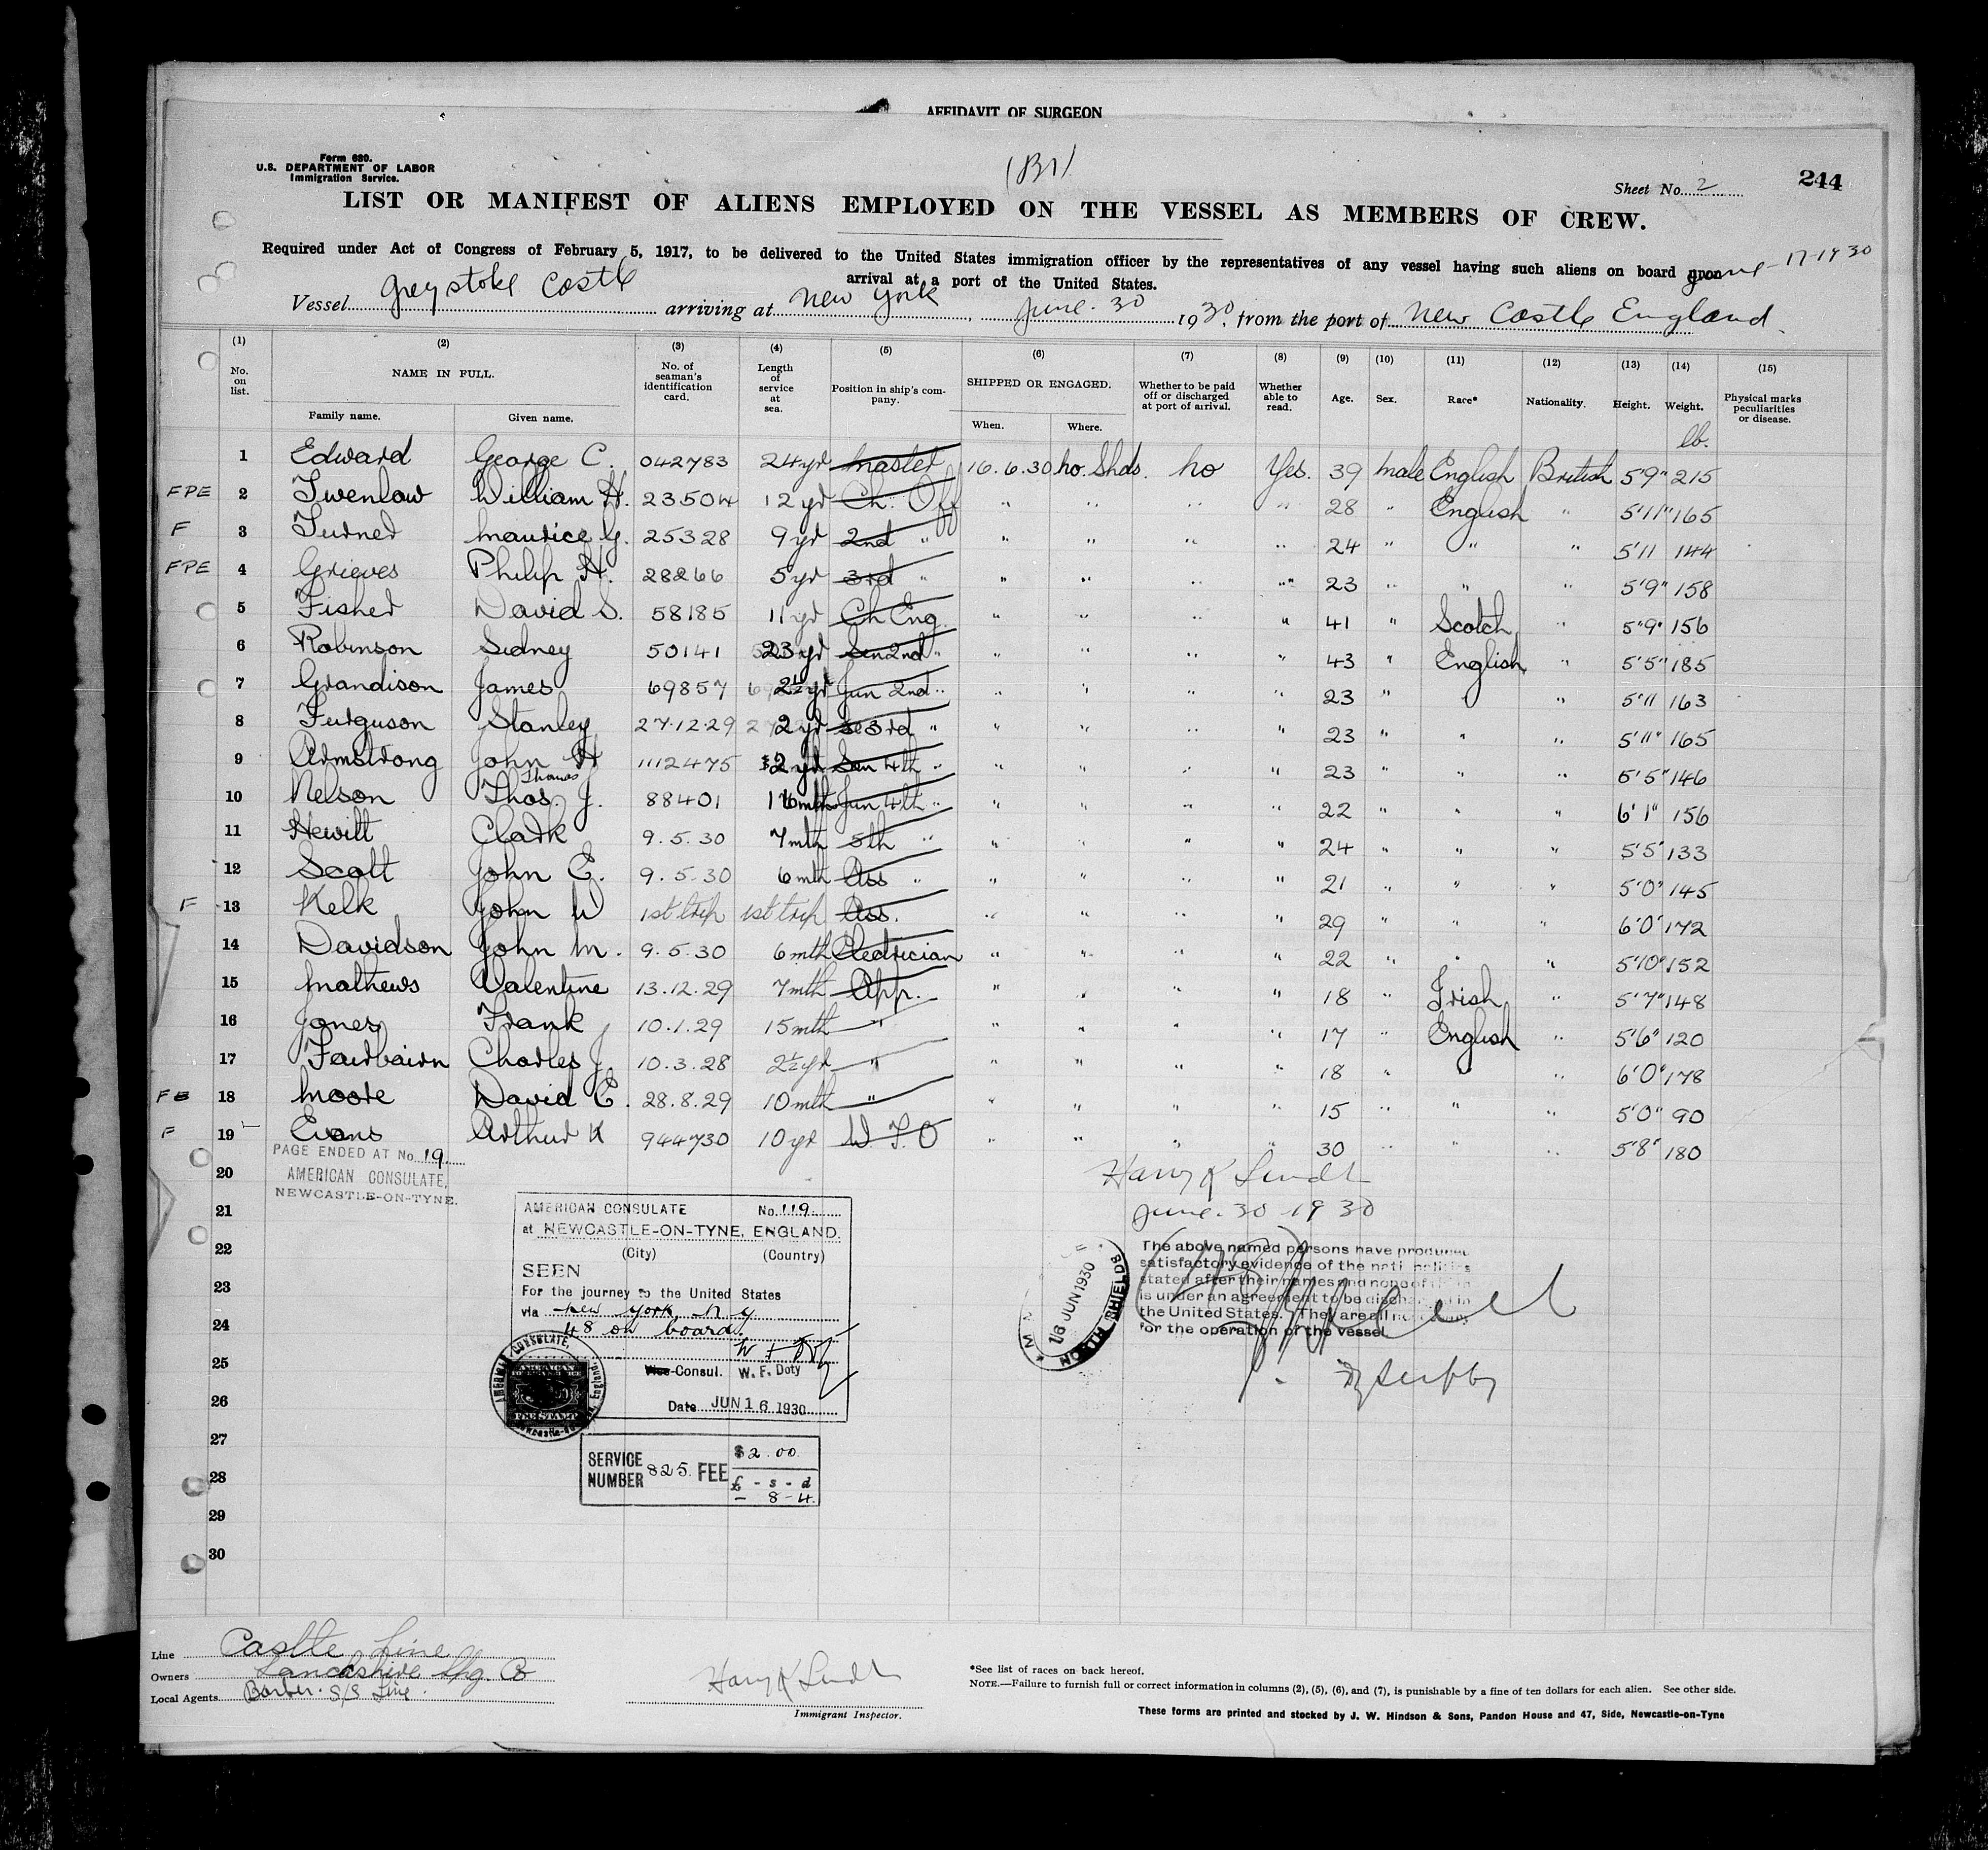 AFFIDAVIT OF SURGEON
Form 680.
U.S. DEPARTMENT OF LABOR
Immigration Service.
(B1)
Sheet No. 2
244
LIST OR MANIFEST OF ALIENS EMPLOYED ON THE VESSEL AS MEMBERS OF CREW.
Required under Act of Congress of February 5, 1917, to be delivered to the United States immigration officer by the representatives of any vessel having such aliens on board upon
arrival at a port of the United States.
June 17-1930
Vessel Greystoke Castle arriving at New York, June 30 1930, from the port of New Castle England
(1) (2) (3) (4) (5) (6) (7) (8) (9) (10) (11) (12) (13) (14) (15)
No. on list. NAME IN FULL. Family name. Given name. No. of seaman's identification card. Length of service at sea. Position in ship's company. SHIPPED OR ENGAGED. When. Where. Whether to be paid off or discharged at port of arrival. Whether able to read. Age. Sex. Race* Nationality. Height. Weight. Physical marks peculiarities or disease.
lb.
1 Edward George C. 042783 24 yr Master 16.6.30 No. Shds. No Yes. 39 Male English British 5'9" 215
FPE 2 Twenlow William H. 23504 12 yr Ch. Off " " " " 28 " English " 5'11" 165
F 3 Turner Maurice G. 25328 9 yr 2nd " " " " " 24 " " " 5'11 144
FPE 4 Grieves Philip H. 28266 5 yr 3rd " " " " " 23 " " " 5'9" 158
5 Fisher David S. 58185 11 yr Ch Eng. " " " " 41 " Scotch " 5'9" 156
6 Robinson Sidney 50141 23 yr Sen 2nd " " " " " 43 " English " 5'5" 185
7 Grandison James 69857 2½ yr Jun 2nd " " " " " 23 " " " 5'11 163
8 Furguson Stanley 27.12.29 2 yr 3rd " " " " " 23 " " " 5'11" 165
9 Armstrong John H 1112475 2 yr Sen 4th " " " " " 23 " " " 5'5" 146
10 Nelson Thos. J. Thomas 88401 16 mth Jun 4th " " " " " 22 " " " 6'1" 156
11 Hewitt Clark 9.5.30 7 mth 5th " " " " " 24 " " " 5'5" 133
12 Scott John E. 9.5.30 6 mth Ass " " " " " 21 " " " 5'0" 145
F 13 Kelk John W 1st trip 1st trip Ass. " " " " 29 " " " 6'0" 172
14 Davidson John M. 9.5.30 6 mth Electrician " " " " 22 " " " 5'10" 152
15 Mathews Valentine 13.12.29 7 mth App. " " " " 18 " Irish " 5'7" 148
16 Jones Frank 10.1.29 15 mth " " " " " 17 " English " 5'6" 120
17 Fairbairn Charles J 10.3.28 2½ yr " " " " " 18 " " " 6'0" 178
18 Moore David E. 28.8.29 10 mth " " " " " 15 " " " 5'0" 90
F 19 Evans Arthur K 944730 10 yr W.T.O " " " " 30 " " " 5'8" 180
PAGE ENDED AT No. 19
AMERICAN CONSULATE,
NEWCASTLE-ON-TYNE.
20
21
22
23
24
25
26
27
28
29
30
AMERICAN CONSULATE No. 119
at NEWCASTLE-ON-TYNE, ENGLAND.
(City) (Country)
SEEN
For the journey to the United States
via New York, N.Y
48 on board.
Vice-Consul. W. F. Doty
Date JUN 16 1930
AMERICAN CONSULATE,
FEE STAMP
SERVICE NUMBER 825. FEE $2.00
£ - s - d
- 8-4.
June 30 1930
16 JUN 1930
NORTH SHIELDS
The above named persons have produced
satisfactory evidence of the nationalities
stated after their names and none of them
is under an agreement to be discharged in
the United States. They are all necessary
for the operation of the vessel
Line Castle Line
Owners Lancashire Shg. Co
Local Agents Barber S/S Line.
Immigrant Inspector.
*See list of races on back hereof.
NOTE.—Failure to furnish full or correct information in columns (2), (5), (6), and (7), is punishable by a fine of ten dollars for each alien. See other side.
These forms are printed and stocked by J. W. Hindson & Sons, Pandon House and 47, Side, Newcastle-on-Tyne